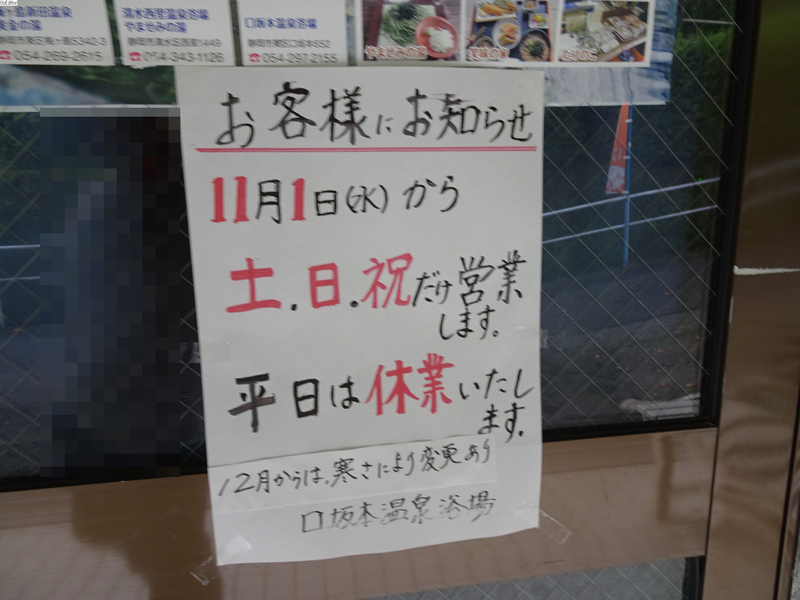 清水西里温泉浴場
やませみの湯
静岡市清水区西里1449
☎054-343-1126
口坂本温泉浴場
静岡市葵区口坂本652
☎054-297-2155
☎054-269-2615
お客様にお知らせ
11月1日(水)から
土.日.祝だけ営業
します。
平日は休業いたし
ます。
12月からは、寒さにより変更あり
口坂本温泉浴場